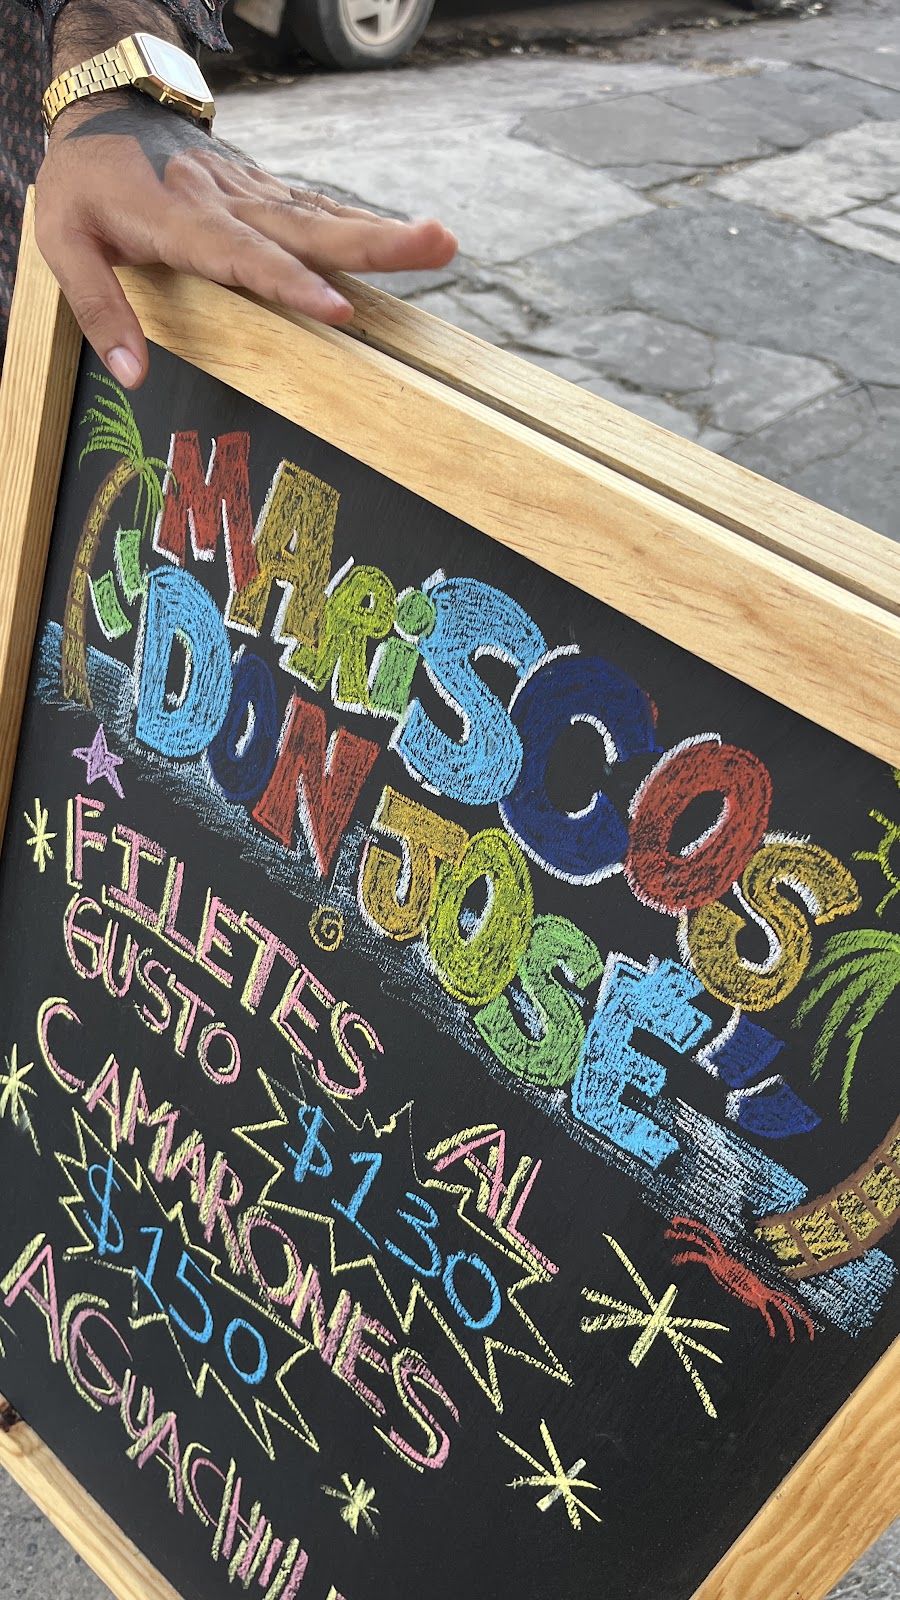 "MARiSCOS
DON JOSÉ"
FILETES AL
GUSTO $130
CAMARONES
$150
AGUACHI